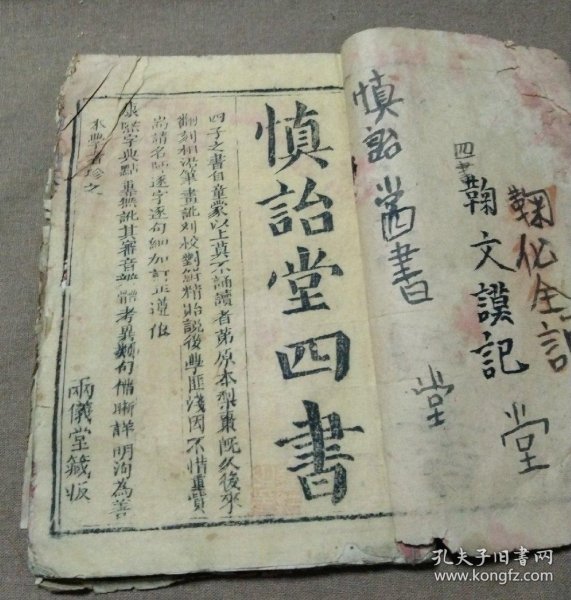 鞠化全記
堂
四書鞠文謨記
堂
慎詒堂書
慎詒堂四書
四子之書自童蒙以上莫不誦讀者第原本梨棗既久後來
翻刻相沿筆畫訛刋校對鮮精貽誤後學匪淺因不惜重貲
耑請名師逐字逐句細加訂正遵依
康熙字典點畫無訛其審音辨體考異類句備晰詳明洵為善
本典學者珍之
兩儀堂籤板
孔夫子旧書网
www.kongfz.com